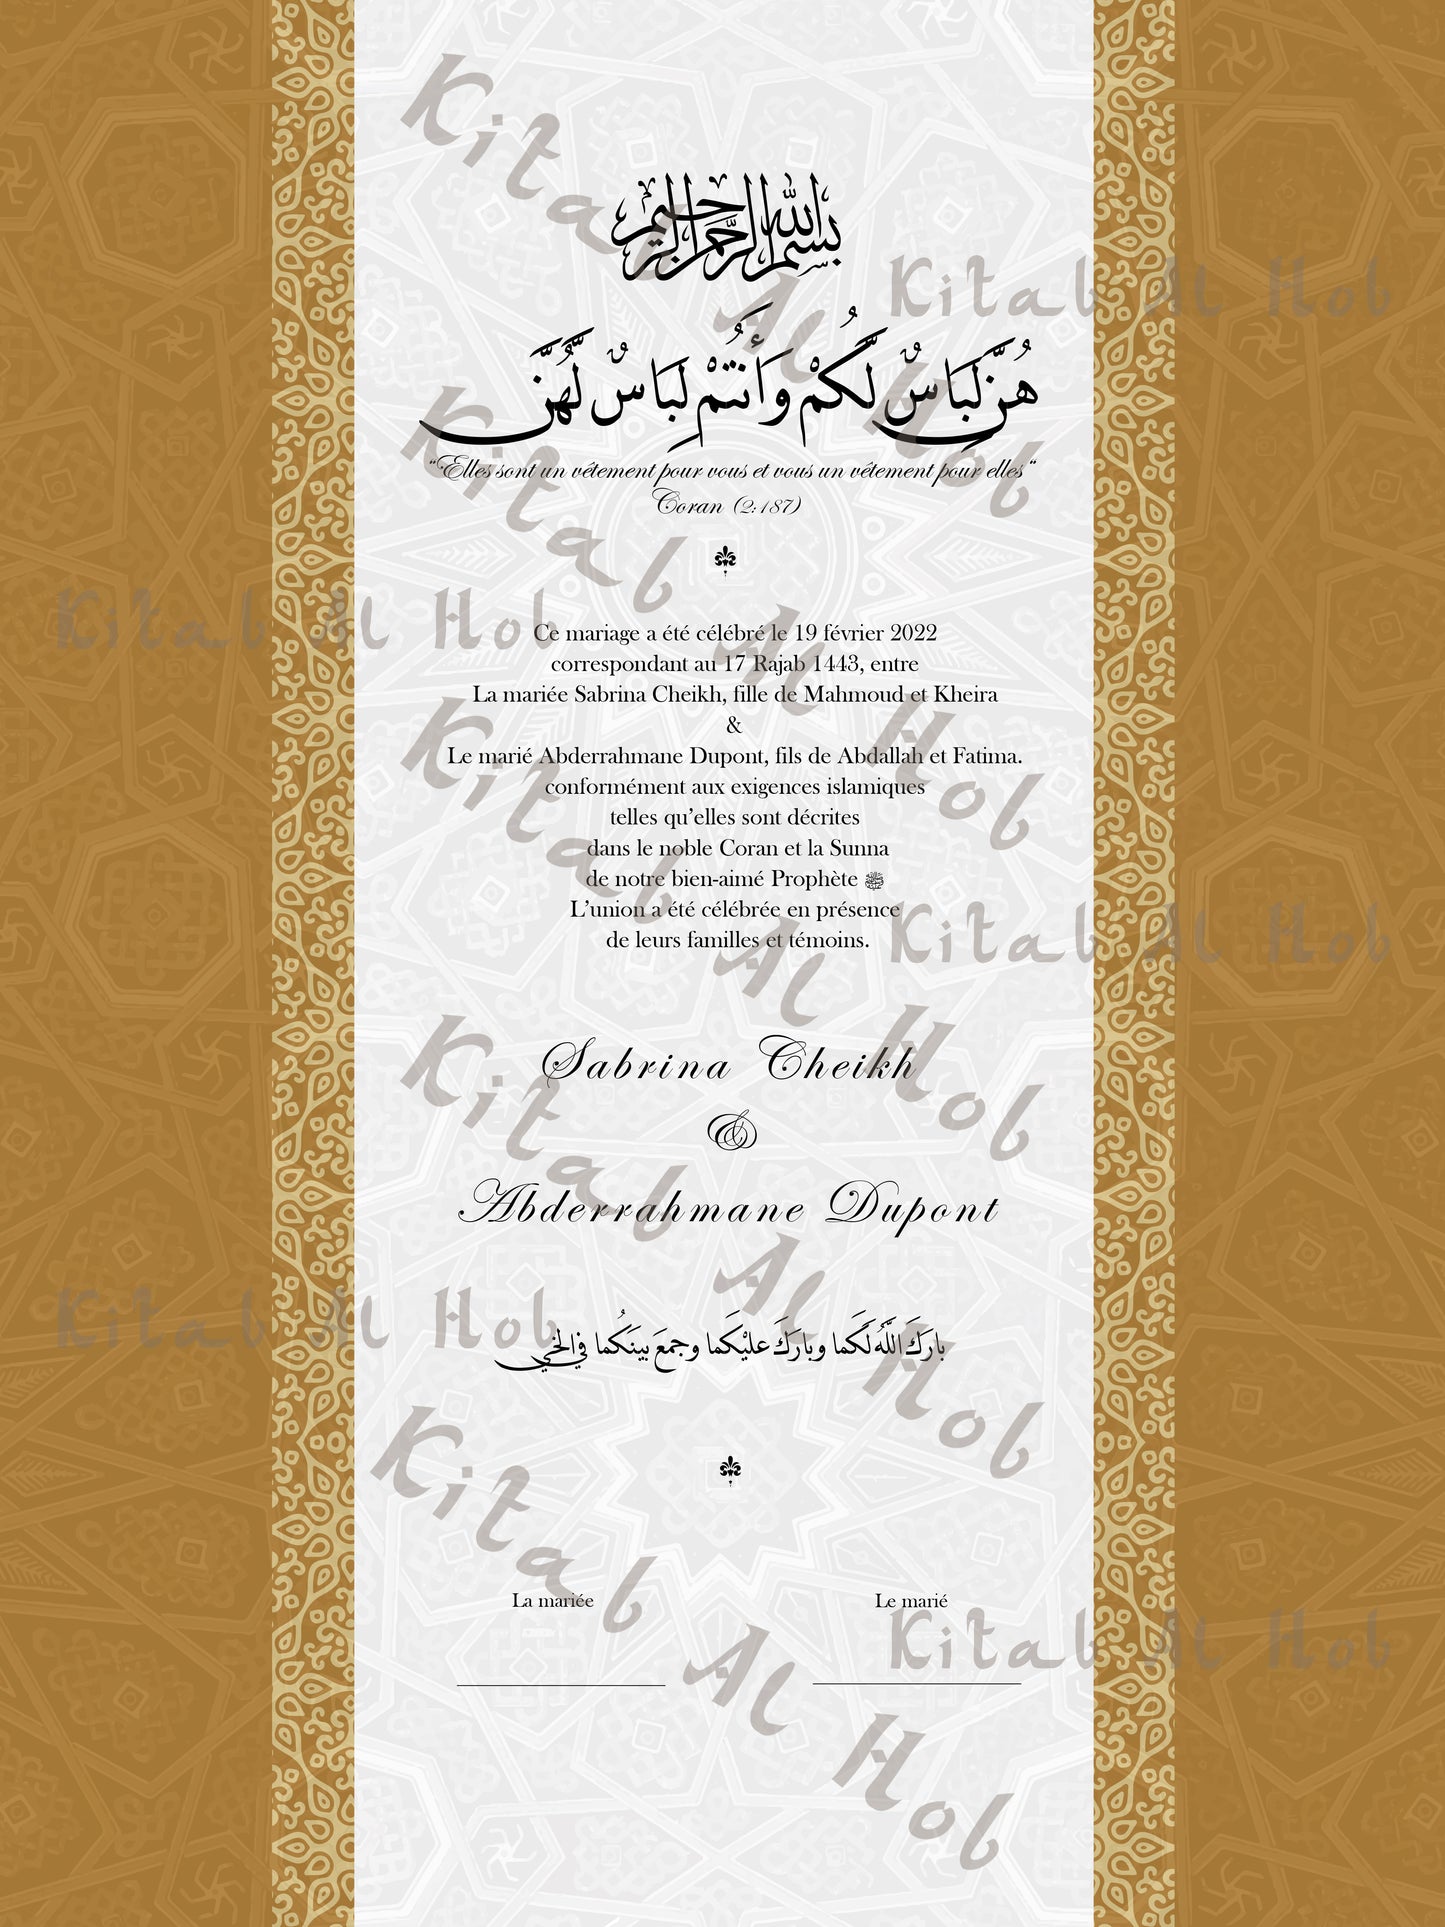 بسم الله الرحمن الرحيم
هُنَّ لِبَاسٌ لَّكُمْ وَأَنتُمْ لِبَاسٌ لَّهُنَّ
"Elles sont un vêtement pour vous et vous un vêtement pour elles"
Coran (2:187)
Ce mariage a été célébré le 19 février 2022
correspondant au 17 Rajab 1443, entre
La mariée Sabrina Cheikh, fille de Mahmoud et Kheira
&
Le marié Abderrahmane Dupont, fils de Abdallah et Fatima.
conformément aux exigences islamiques
telles qu’elles sont décrites
dans le noble Coran et la Sunna
de notre bien-aimé Prophète ﷺ
L’union a été célébrée en présence
de leurs familles et témoins.
Sabrina Cheikh
&
Abderrahmane Dupont
بارَكَ اللَّهُ لَكُما وبارَكَ عليْكَما وجمعَ بينَكُما في
La mariée
Le marié
Kitab Al Hob
Kitab Al Hob
Kitab Al Hob
Kitab Al Hob
Kitab Al Hob
Kitab Al Hob
Kitab Al Hob
Kitab Al Hob
Kitab Al Hob
Kitab Al Hob